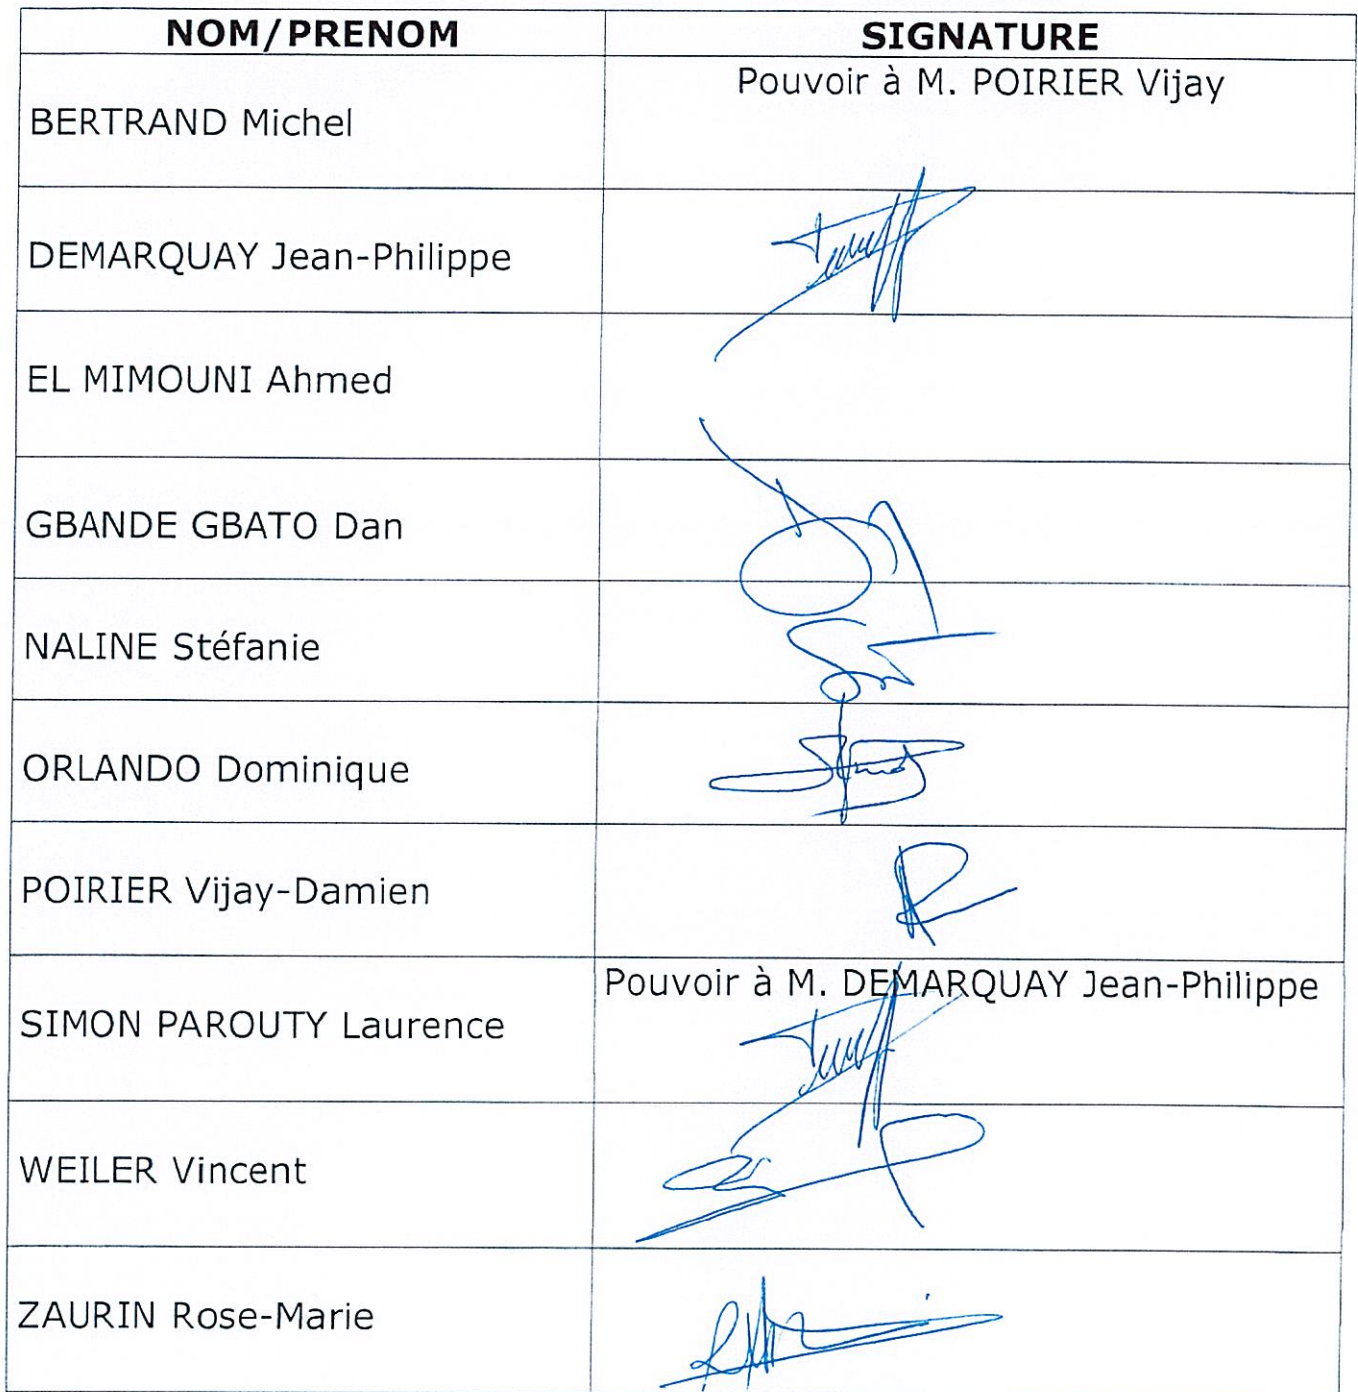 NOM/PRENOM SIGNATURE
BERTRAND Michel Pouvoir à M. POIRIER Vijay
DEMARQUAY Jean-Philippe
EL MIMOUNI Ahmed
GBANDE GBATO Dan
NALINE Stéfanie
ORLANDO Dominique
POIRIER Vijay-Damien
SIMON PAROUTY Laurence Pouvoir à M. DEMARQUAY Jean-Philippe
WEILER Vincent
ZAURIN Rose-Marie